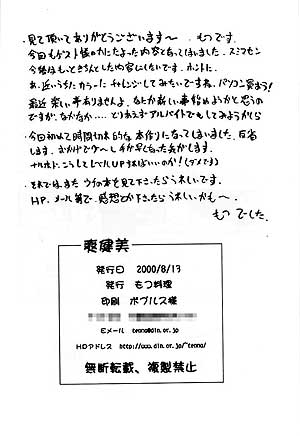 ・見て頂いてありがとうございます〜 もつです。
今回もゲスト様のかたよった内容となってしまいました。スミマセン
今後はもっときちんとした内容にしたいです。ホントに。
あ、近いうちにカラーにチャレンジしてみたいですね、パソコン買おう!
最近 楽しい事ありませんよ、なにか新しい事始めようかと思うの
ですが、なかなか…… どうしよう アルバイトでもしてみようかしら
・今回初めて時間切れ的な本作りになってしまいました、反省
します。おかげで〜し 手が早くなった気がします。
ナルホド、こうしてレベルUPすればいいのか!(ダメです)
・それでは、また ウチの本を見て下さったらうれしいです。
HP、メール等で、感想とか下さったら うれしいかも〜
もつ でした。
発行日 2000/8/13
発行 もつ料理
印刷 ポプルス様
Eメール
HPアドレス
無断転載、複製禁止